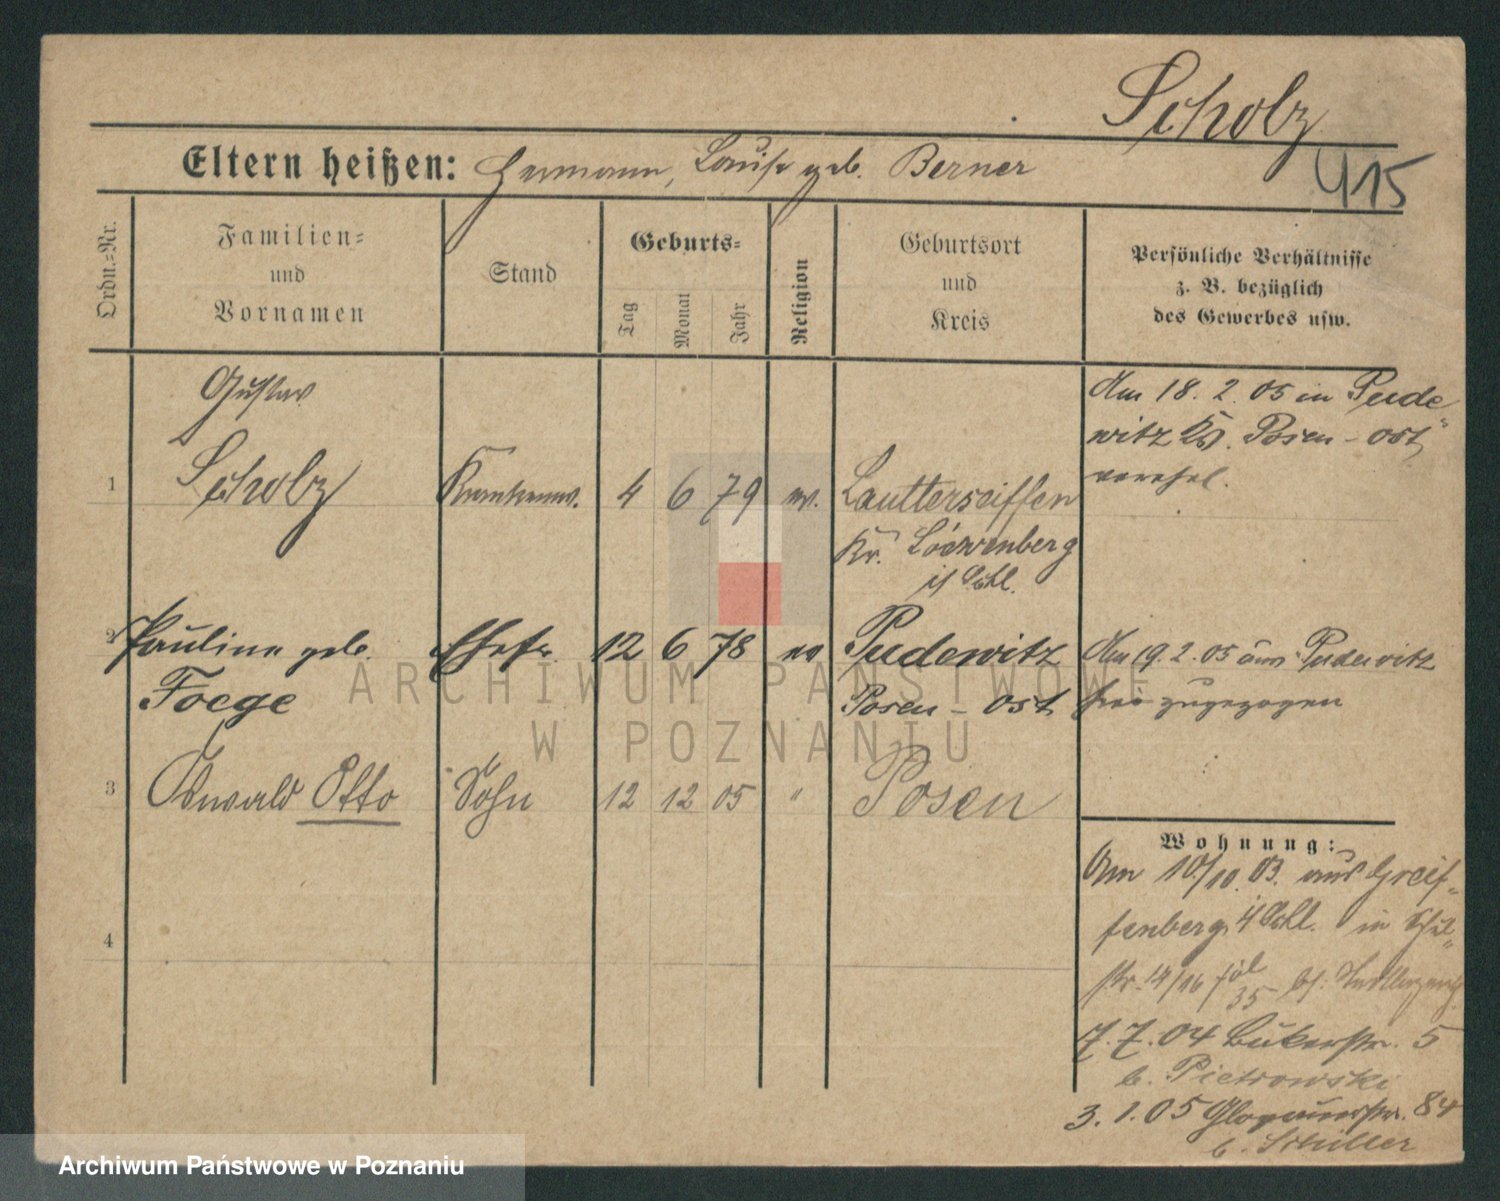 Scholz
415
Eltern heißen: Hermann, Louise geb. Berner
Ordn.=Nr.
Familien=
und
Vornamen
Stand
Geburts=
Tag
Monat
Jahr
Religion
Geburtsort
und
Kreis
Persönliche Verhältnisse
z. B. bezüglich
des Gewerbes usw.
1
Gustav
Scholz
Krankenw.
4 6 79
ev.
Lautterseiffen
Kr. Löewenberg
i/ Schl.
Am 18. 2. 05 in Pude
witz Kr. Posen - ost
verehel.
2
Pauline geb.
Foege
Ehefr.
12 6 78
ev
Pudewitz
Posen - ost
Am 19. 2. 05 aus Pudewitz
hier zugezogen
3
Oswald Otto
Sohn
12 12 05
"
Posen
4
Wohnung:
Am 10/10. 03. aus Greif=
fenberg i/ Schl. in Schul=
str. 14/16
35
7. 7. 04 Bukerstr. 5
b. Pietrowski
3. 1. 05 Glogauerstr. 84
b. Schiller
ARCHIWUM PAŃSTWOWE
W POZNANIU
Archiwum Państwowe w Poznaniu